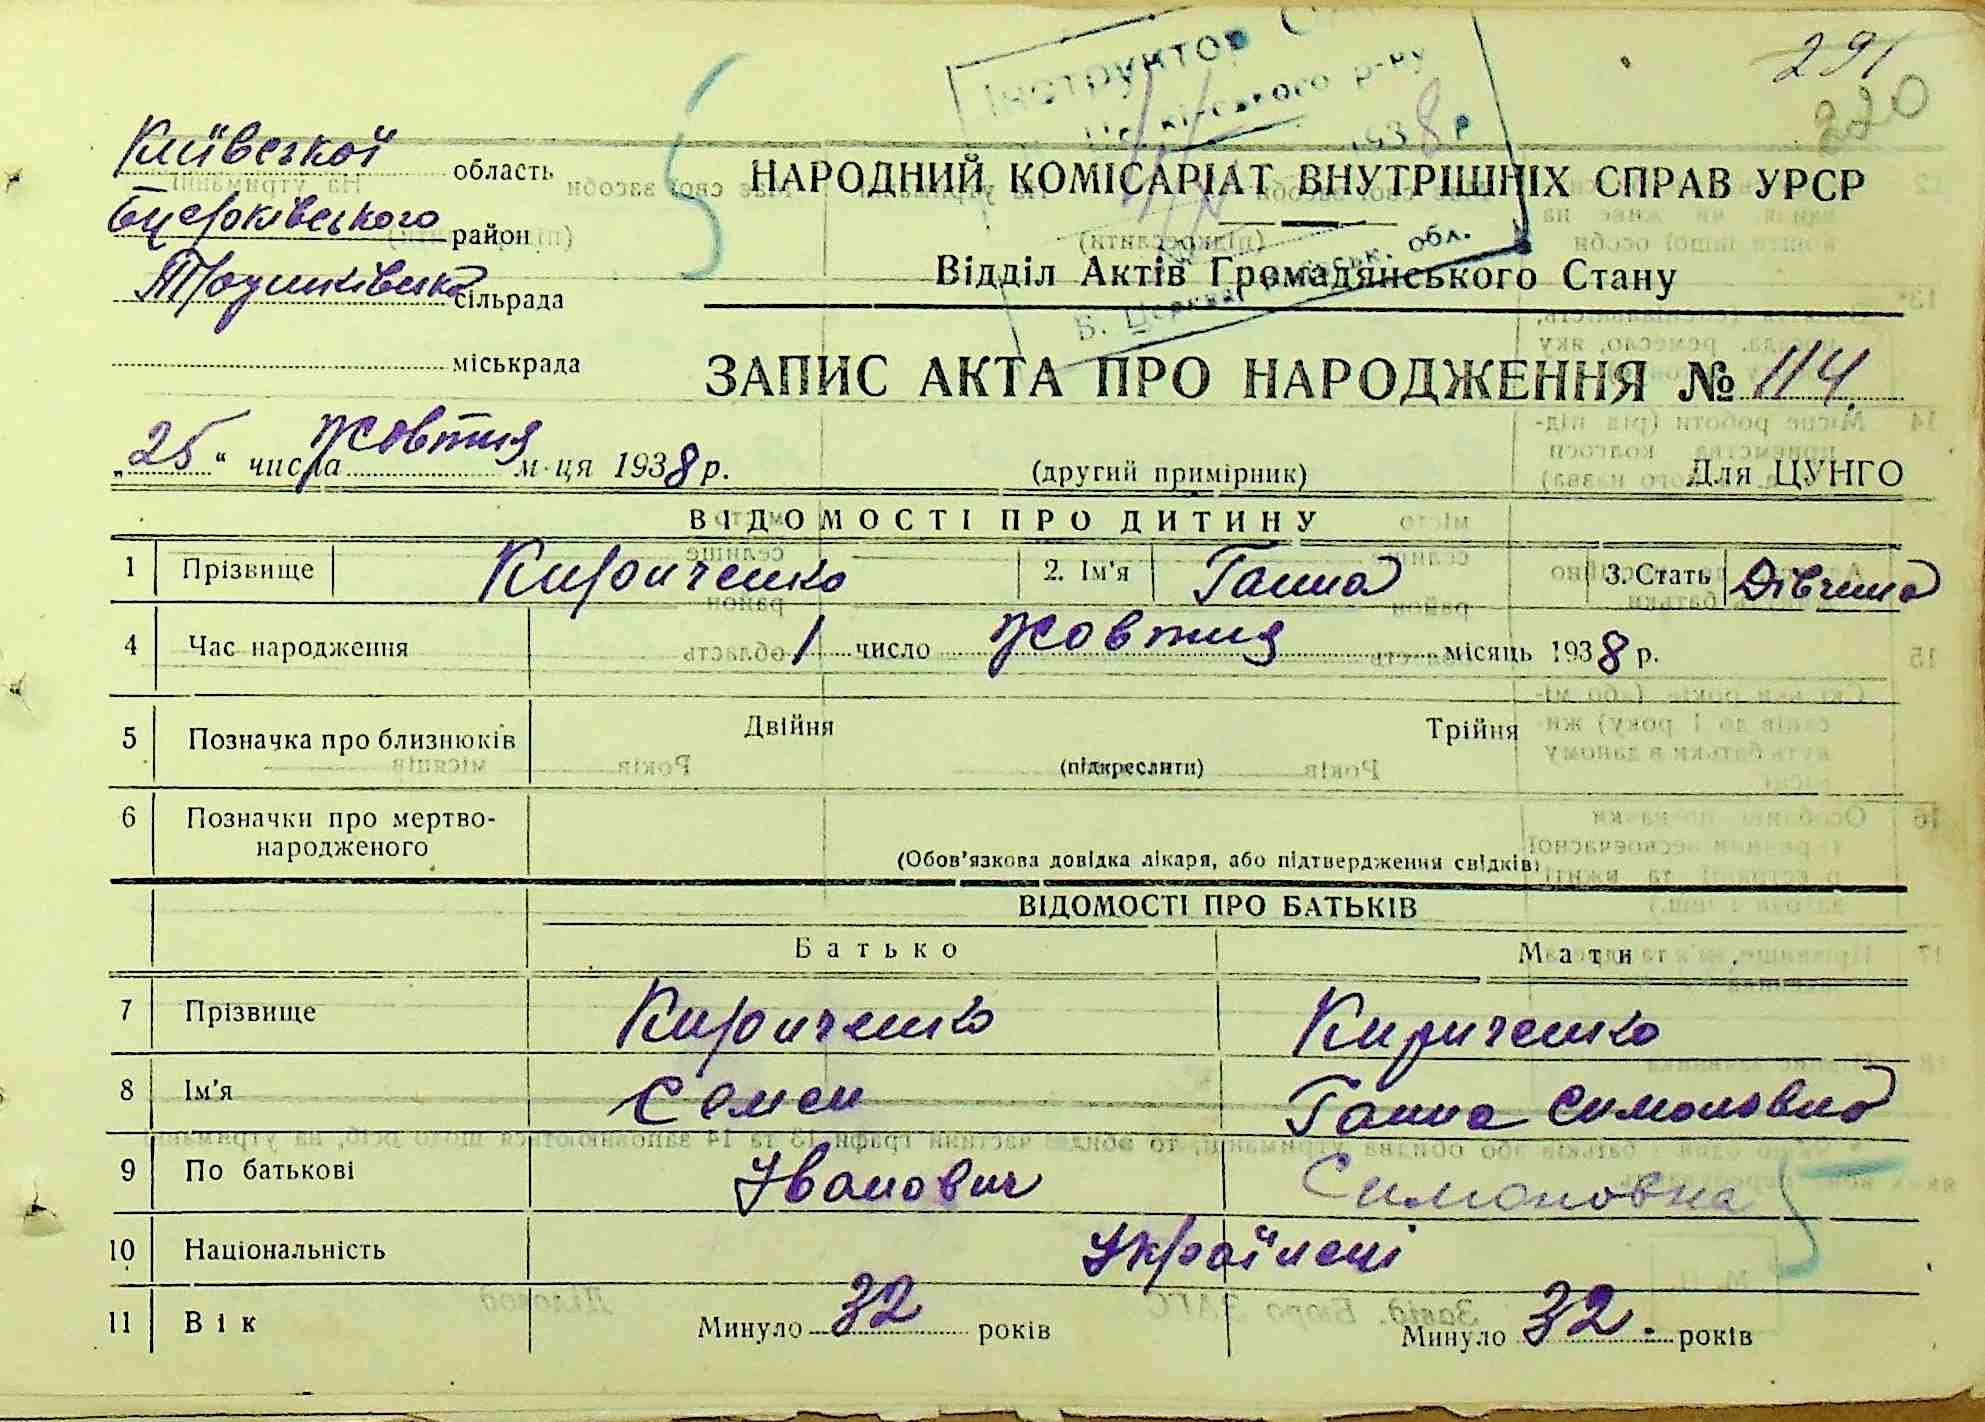 291
220
Інструктор
р-ну
1938 р
Б. Церква, обл.
Київської область
Бцерківського район
Трушківська сільрада
міськрада
НАРОДНИЙ КОМІСАРІАТ ВНУТРІШНІХ СПРАВ УРСР
Відділ Актів Громадянського Стану
ЗАПИС АКТА ПРО НАРОДЖЕННЯ № 114.
„25“ числа жовтня м-ця 1938 р.
(другий примірник)
Для ЦУНГО
ВІДОМОСТІ ПРО ДИТИНУ
1 Прізвище Кириченко 2. Ім'я Ганна 3. Стать Дівчина
4 Час народження 1 число жовтня місяць 1938 р.
5 Позначка про близнюків Двійня Трійня
(підкреслити)
6 Позначки про мертво-
народженого
(Обов'язкова довідка лікаря, або підтвердження свідків)
ВІДОМОСТІ ПРО БАТЬКІВ
Батько Мати
7 Прізвище Кириченко Кириченко
8 Ім'я Семен Ганна Симоновна
9 По батькові Іванович Симоновна
10 Національність Українці
11 Вік Минуло 32 років Минуло 32. років